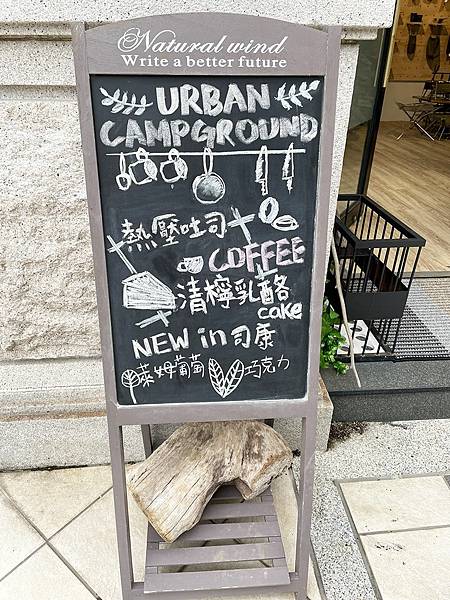 Natural wind
Write a better future
URBAN
CAMPGROUND
熱壓吐司
COFFEE
清檸乳酪
cake
NEW in 司康
萊姆葡萄 巧克力